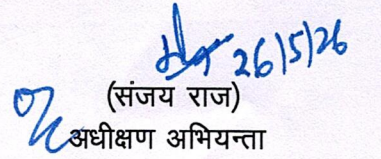 26/5/26
(संजय राज)
अधीक्षण अभियन्ता